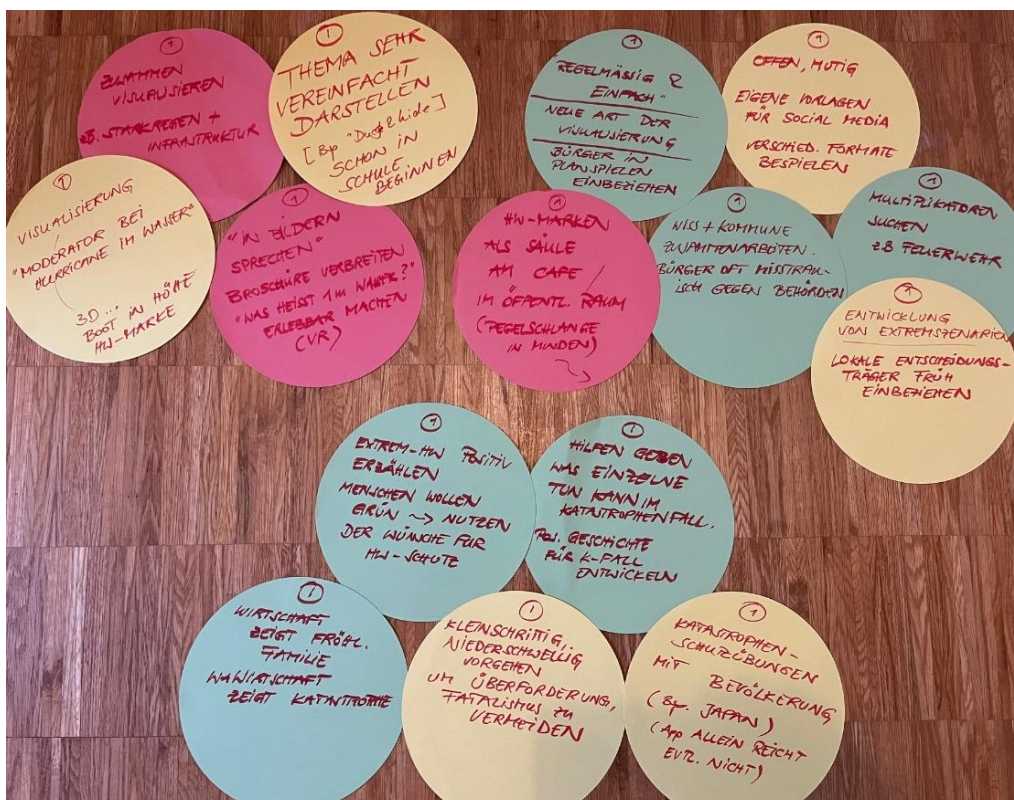 ①
ZUSAMMEN
VISUALISIEREN
zB. STARKREGEN +
INFRASTRUKTUR
①
THEMA SEHR
VEREINFACHT
DARSTELLEN
[Bsp "Duck & Hide"]
SCHON IN
SCHULE
BEGINNEN
①
REGELMÄSSIG &
EINFACH"
NEUE ART DER
VISUALISIERUNG
BÜRGER IN
PLANSPIELEN
EINBEZIEHEN
①
OFFEN, MUTIG
EIGENE VORLAGEN
FÜR SOCIAL MEDIA
VERSCHIED. FORMATE
BESPIELEN
①
VISUALISIERUNG
"MODERATOR BEI
HURRICANE IM WASSER"
3D...
BOOT IN HÖHE
HW-MARKE
①
"IN BILDERN
SPRECHEN"
BROSCHÜRE VERBREITEN
"WAS HEISST 1M WASSER?"
ERLEBBAR MACHEN
(VR)
①
HW-MARKEN
ALS SÄULE
AM CAFE /
IM ÖFFENTL. RAUM
(PEGELSCHLANGE
IN MINDEN)
①
WISS + KOMMUNE
ZUSAMMENARBEITEN.
BÜRGER OFT MISSTRAU-
ISCH GEGEN BEHÖRDEN
①
MULTIPLIKATOREN
SUCHEN
ZB FEUERWEHR
①
ENTWICKLUNG
VON EXTREMSZENARIEN
LOKALE ENTSCHEIDUNGS-
TRÄGER FRÜH
EINBEZIEHEN
①
EXTREM-HW POSITIV
ERZÄHLEN
MENSCHEN WOLLEN
GRÜN ~> NUTZEN
DER WÜNSCHE FÜR
HW-SCHUTZ
①
HILFEN GEBEN
WAS EINZELNE
TUN KANN IM
KATASTROPHENFALL.
POS. GESCHICHTE
FÜR K-FALL
ENTWICKELN
①
WIRTSCHAFT
ZEIGT FRÖHL.
FAMILIE
WAWIRTSCHAFT
ZEIGT KATASTROPHE
①
KLEINSCHRITTIG,
NIEDERSCHWELLIG
VORGEHEN
UM ÜBERFORDERUNG,
FATALISMUS ZU
VERMEIDEN
①
KATASTROPHEN-
SCHUTZÜBUNGEN
MIT
BEVÖLKERUNG
(Bsp. JAPAN)
(App ALLEIN REICHT
EVTL. NICHT)